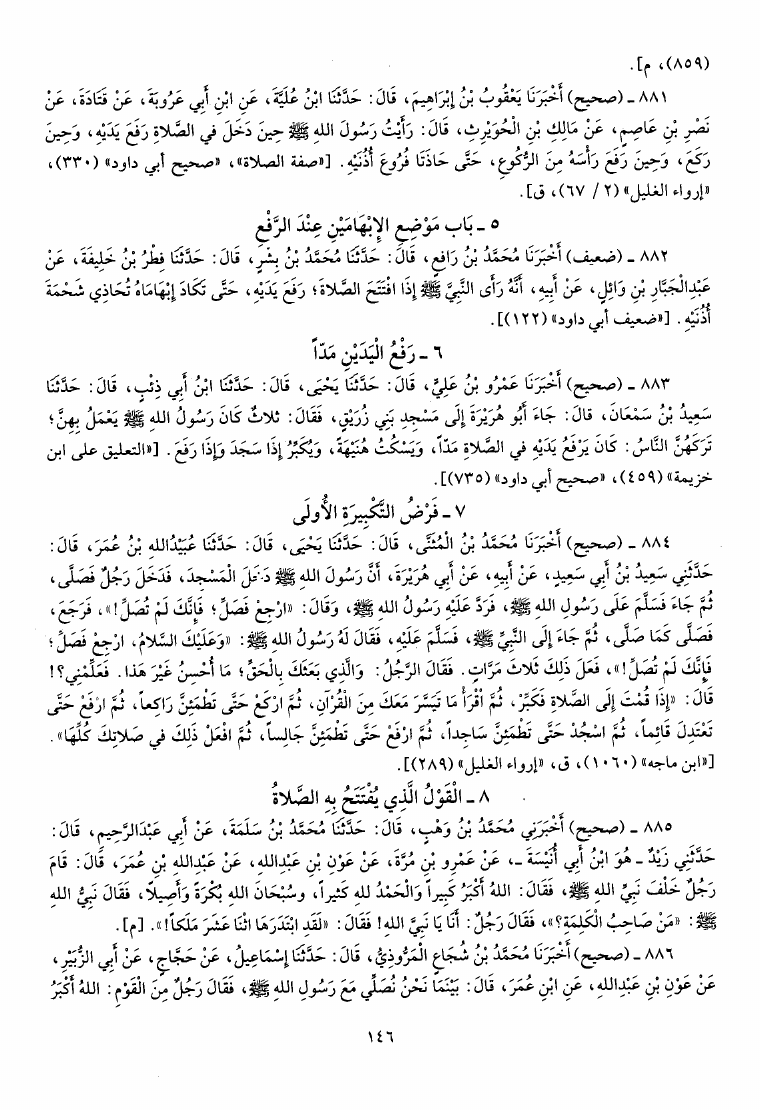 (٨٥٩)، م].
٨٨١ ـ (صحيح) أَخْبَرَنَا يَعْقُوبُ بْنُ إِبْرَاهِيمَ، قَالَ: حَدَّثَنَا ابْنُ عُلَيَّةَ، عَنِ ابْنِ أَبِي عَرُوبَةَ، عَنْ قَتَادَةَ، عَنْ
نَصْرِ بْنِ عَاصِمٍ، عَنْ مَالِكِ بْنِ الْحُوَيْرِثِ، قَالَ: رَأَيْتُ رَسُولَ اللهِ ﷺ حِينَ دَخَلَ فِي الصَّلاةِ رَفَعَ يَدَيْهِ، وَحِينَ
رَكَعَ، وَحِينَ رَفَعَ رَأْسَهُ مِنَ الرُّكُوعِ، حَتَّى حَاذَتَا فُرُوعَ أُذُنَيْهِ. [«صفة الصلاة»، «صحيح أبي داود» (٣٣٠)،
«إرواء الغليل» (٢/ ٦٧)، ق].
٥ ـ بَاب مَوْضِعِ الإِبْهَامَيْنِ عِنْدَ الرَّفْعِ
٨٨٢ ـ (ضعيف) أَخْبَرَنَا مُحَمَّدُ بْنُ رَافِعٍ، قَالَ: حَدَّثَنَا مُحَمَّدُ بْنُ بِشْرٍ، قَالَ: حَدَّثَنَا فِطْرُ بْنُ خَلِيفَةَ، عَنْ
عَبْدِالْجَبَّارِ بْنِ وَائِلٍ، عَنْ أَبِيهِ، أَنَّهُ رَأَى النَّبِيَّ ﷺ إِذَا افْتَتَحَ الصَّلاةَ؛ رَفَعَ يَدَيْهِ، حَتَّى تَكَادَ إِبْهَامَاهُ تُحَاذِي شَحْمَةَ
أُذُنَيْهِ. [«ضعيف أبي داود» (١٢٢)].
٦ ـ رَفْعُ الْيَدَيْنِ مَدّاً
٨٨٣ ـ (صحيح) أَخْبَرَنَا عَمْرُو بْنُ عَلِيٍّ، قَالَ: حَدَّثَنَا يَحْيَى، قَالَ: حَدَّثَنَا ابْنُ أَبِي ذِئْبٍ، قَالَ: حَدَّثَنَا
سَعِيدُ بْنُ سَمْعَانَ، قالَ: جَاءَ أَبُو هُرَيْرَةَ إِلَى مَسْجِدِ بَنِي زُرَيْقٍ، فَقَالَ: ثلاثٌ كَانَ رَسُولُ اللهِ ﷺ يَعْمَلُ بِهِنَّ؛
تَرَكَهُنَّ النَّاسُ: كَانَ يَرْفَعُ يَدَيْهِ فِي الصَّلاةِ مَدّاً، وَيَسْكُتُ هُنَيْهَةً، وَيُكَبِّرُ إِذَا سَجَدَ وَإِذَا رَفَعَ. [«التعليق على ابن
خزيمة» (٤٥٩)، «صحيح أبي داود» (٧٣٥)].
٧ ـ فَرْضُ التَّكْبِيرَةِ الأُولَى
٨٨٤ ـ (صحيح) أَخْبَرَنَا مُحَمَّدُ بْنُ الْمُثَنَّى، قَالَ: حَدَّثَنَا يَحْيَى، قَالَ: حَدَّثَنَا عُبَيْدُاللهِ بْنُ عُمَرَ، قَالَ:
حَدَّثَنِي سَعِيدُ بْنُ أَبِي سَعِيدٍ، عَنْ أَبِيهِ، عَنْ أَبِي هُرَيْرَةَ، أَنَّ رَسُولَ اللهِ ﷺ دَخَلَ الْمَسْجِدَ، فَدَخَلَ رَجُلٌ فَصَلَّى،
ثُمَّ جَاءَ فَسَلَّمَ عَلَى رَسُولِ اللهِ ﷺ، فَرَدَّ عَلَيْهِ رَسُولُ اللهِ ﷺ، وَقَالَ: «ارْجِعْ فَصَلِّ؛ فَإِنَّكَ لَمْ تُصَلِّ!»، فَرَجَعَ،
فَصَلَّى كَمَا صَلَّى، ثُمَّ جَاءَ إِلَى النَّبِيِّ ﷺ، فَسَلَّمَ عَلَيْهِ، فَقَالَ لَهُ رَسُولُ اللهِ ﷺ: «وَعَلَيْكَ السَّلامُ، ارْجِعْ فَصَلِّ؛
فَإِنَّكَ لَمْ تُصَلِّ!»، فَعَلَ ذَلِكَ ثَلاثَ مَرَّاتٍ. فَقَالَ الرَّجُلُ: وَالَّذِي بَعَثَكَ بِالْحَقِّ؛ مَا أُحْسِنُ غَيْرَ هَذَا. فَعَلِّمْنِي؟!
قَالَ: «إِذَا قُمْتَ إِلَى الصَّلاةِ فَكَبِّرْ، ثُمَّ اقْرَأْ مَا تَيَسَّرَ مَعَكَ مِنَ الْقُرْآنِ، ثُمَّ ارْكَعْ حَتَّى تَطْمَئِنَّ رَاكِعاً، ثُمَّ ارْفَعْ حَتَّى
تَعْتَدِلَ قَائِماً، ثُمَّ اسْجُدْ حَتَّى تَطْمَئِنَّ سَاجِداً، ثُمَّ ارْفَعْ حَتَّى تَطْمَئِنَّ جَالِساً، ثُمَّ افْعَلْ ذَلِكَ فِي صَلاتِكَ كُلِّهَا».
[«ابن ماجه» (١٠٦٠)، ق، «إرواء الغليل» (٢٨٩)].
٨ ـ الْقَوْلُ الَّذِي يُفْتَتَحُ بِهِ الصَّلاةُ
٨٨٥ ـ (صحيح) أَخْبَرَنِي مُحَمَّدُ بْنُ وَهْبٍ، قَالَ: حَدَّثَنَا مُحَمَّدُ بْنُ سَلَمَةَ، عَنْ أَبِي عَبْدِالرَّحِيمِ، قَالَ:
حَدَّثَنِي زَيْدٌ ـ هُوَ ابْنُ أَبِي أُنَيْسَةَ ـ، عَنْ عَمْرِو بْنِ مُرَّةَ، عَنْ عَوْنِ بْنِ عَبْدِاللهِ، عَنْ عَبْدِاللهِ بْنِ عُمَرَ، قَالَ: قَامَ
رَجُلٌ خَلْفَ نَبِيِّ اللهِ ﷺ، فَقَالَ: اللهُ أَكْبَرُ كَبِيراً وَالْحَمْدُ للهِ كَثِيراً، وسُبْحَانَ اللهِ بُكْرَةً وَأَصِيلاً، فَقَالَ نَبِيُّ اللهِ
ﷺ: «مَنْ صَاحِبُ الْكَلِمَةِ؟»، فَقَالَ رَجُلٌ: أَنَا يَا نَبِيَّ اللهِ! فَقَالَ: «لَقَدِ ابْتَدَرَهَا اثْنَا عَشَرَ مَلَكاً!». [م].
٨٨٦ ـ (صحيح) أَخْبَرَنَا مُحَمَّدُ بْنُ شُجَاعٍ الْمَرُّوذِيُّ، قَالَ: حَدَّثَنَا إِسْمَاعِيلُ، عَنْ حَجَّاجٍ، عَنْ أَبِي الزُّبَيْرِ،
عَنْ عَوْنِ بْنِ عَبْدِاللهِ، عَنِ ابْنِ عُمَرَ، قَالَ: بَيْنَمَا نَحْنُ نُصَلِّي مَعَ رَسُولِ اللهِ ﷺ، فَقَالَ رَجُلٌ مِنَ الْقَوْمِ: اللهُ أَكْبَرُ
١٤٦